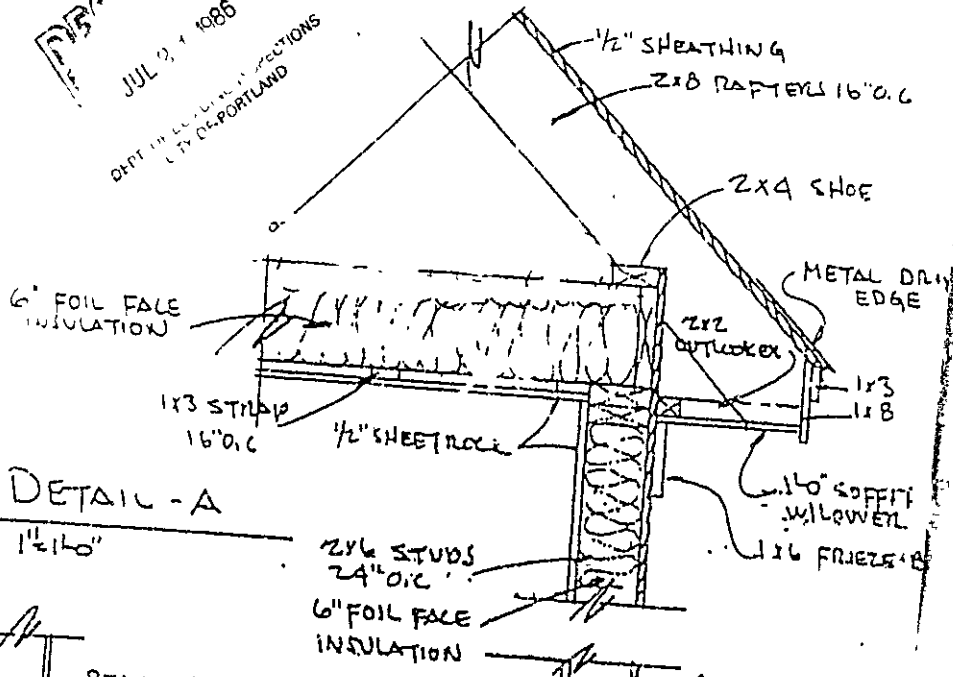 JUL 1986
DEPT OF INSPECTIONS
CITY OF PORTLAND
1/2" SHEATHING
2x8 RAFTERS 16" O.C
2x4 SHOE
METAL DRIP
EDGE
6" FOIL FACE
INSULATION
2x2
OUTLOOKER
1x3
1x8
1x3 STRAP
16" O.C
1/2" SHEETROCK
DETAIL - A
1"=1'-0"
1'-0" SOFFIT
W/LOUVER
1x6 FRIEZE B
2x6 STUDS
24" O.C
6" FOIL FACE
INSULATION